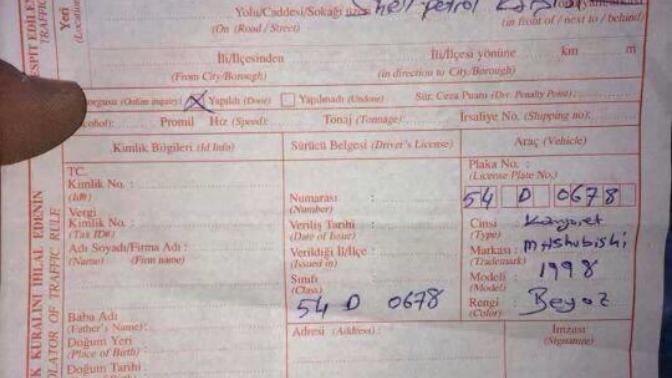 Yeri
(Location)
Yolu/Caddesi/Sokağı üzeri
Shell petrol
(On (Road / Street)
(in front of / next to / behind)
İli/İlçesinden
İli/İlçesi yönüne km m
(From City/Borough)
(in direction to City/Borough)
(Online inquiry) X Yapıldı (Done) Yapılmadı (Undone) Sür. Ceza Puanı (Drv. Penalty Point) :
Promil Hız (Speed): Tonaj (Tonnage): İrsaliye No. (Shipping no):
Kimlik Bilgileri (Id Info)
TC.
Kimlik No. :
(Id#)
Vergi
Kimlik No. :
(Tax ID#)
Adı Soyadı/Firma Adı :
(Name) (Firm name)
Baba Adı
(Father's Name):
Doğum Yeri
(Place of Birth)
Doğum Tarihi
Sürücü Belgesi (Driver's License)
Numarası :
(Number)
Veriliş Tarihi :
(Date of Issue)
Verildiği İl/İlçe :
(Issued in)
Sınıfı :
(Class)
54 D 0678
Adresi (Address) :
Araç (Vehicle)
Plaka No. :
(License Plate No.)
54 D 0678
Cinsi :
(Type)
Markası : Mitshubishi
(Trademark)
Modeli : 1998
(Model)
Rengi : Beyaz
(Color)
İmzası
(Signature)
K KURALINI İHLAL EDENİN
OLATOR OF TRAFFIC RULE